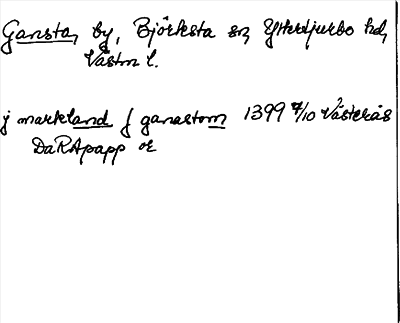 Gansta, by, Björksta sn, Ytterdjurbo hd,
Västm l.
j markland j ganastom 1399 4/10 Västerås
DaRApapp or